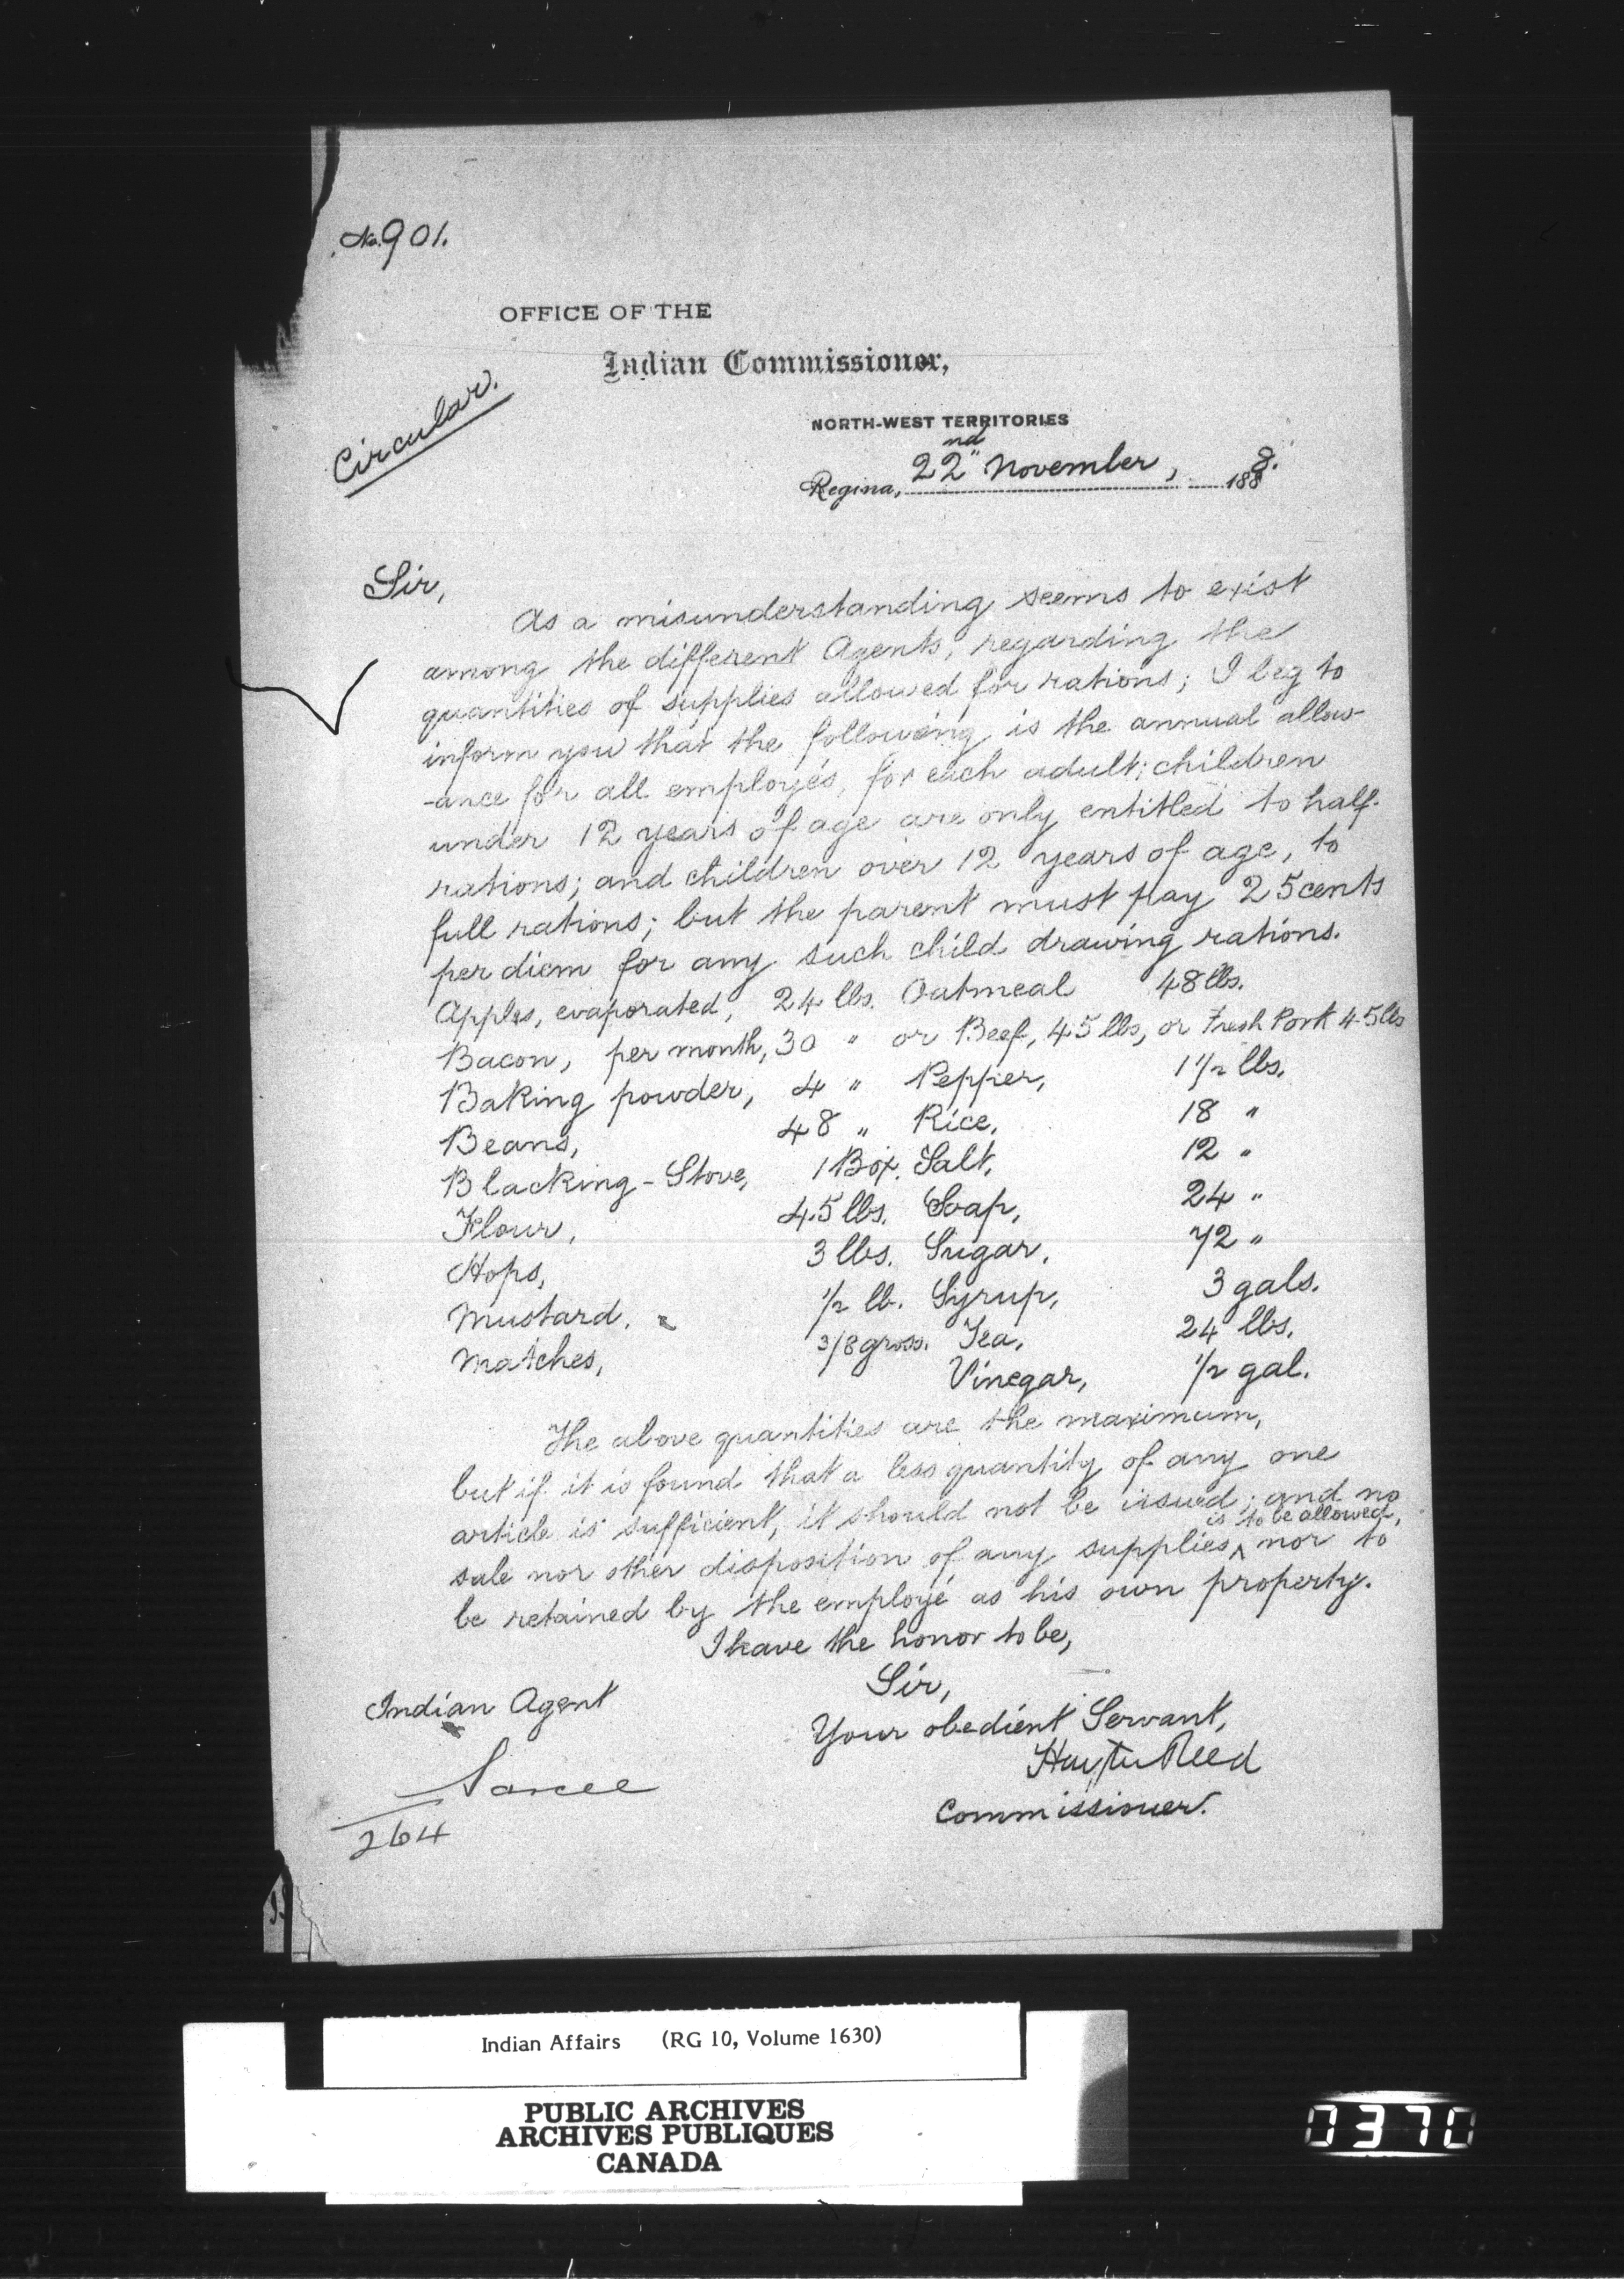 No. 901.
OFFICE OF THE
Indian Commissioner,
Circular.
NORTH-WEST TERRITORIES
Regina, 22nd November, 1888.
Sir,
As a misunderstanding seems to exist
among the different Agents, regarding the
quantities of supplies allowed for rations; I beg to
inform you that the following is the annual allow-
-ance for all employés, for each adult; children
under 12 years of age are only entitled to half-
rations; and children over 12 years of age, to
full rations; but the parent must pay 25 cents
per diem for any such child drawing rations.
Apples, evaporated, 24 lbs. Oatmeal 48 lbs.
Bacon, per month, 30 " or Beef, 45 lbs, or Fresh Pork 45 lbs
Baking powder, 4 " Pepper, 1 1/2 lbs.
Beans, 48 " Rice, 18 "
Blacking-Stove, 1 Box. Salt, 12 "
Flour, 45 lbs. Soap, 24 "
Hops, 3 lbs. Sugar, 72 "
Mustard. 1/2 lb. Syrup, 3 gals.
Matches, 3/8 gross. Tea, 24 lbs.
Vinegar, 1/2 gal.
The above quantities are the maximum,
but if it is found that a less quantity of any one
article is sufficient, it should not be issued; and no
sale nor other disposition of any supplies ^ is to be allowed, nor to
be retained by the employé as his own property.
I have the honor to be,
Sir,
Your obedient Servant,
Hayter Reed
Commissioner.
Indian Agent
Sarcee
264
Indian Affairs (RG 10, Volume 1630)
PUBLIC ARCHIVES
ARCHIVES PUBLIQUES
CANADA
0370